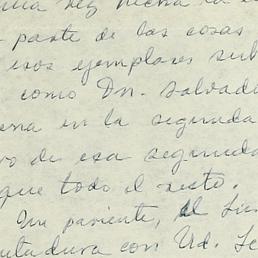 una vez hecha la
parte de las cosas
esos ejemplares sub
como Dn. Salvado
ena en la segunda
vo de esa segunda
que todo el resto.
Un pariente, el
utadura con Ud. Le